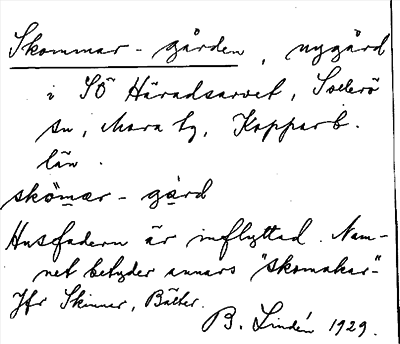 Skommar-gården, nygård
i SÖ Häradsarvet, Sollerö
sn, Mora tg, Kopparb.
län.
skömar-gård
Husfadern är inflyttad. Nam-
net betyder annars "skomakar-"
Jfr Skinnar, Bälter.
B. Lindén 1929.